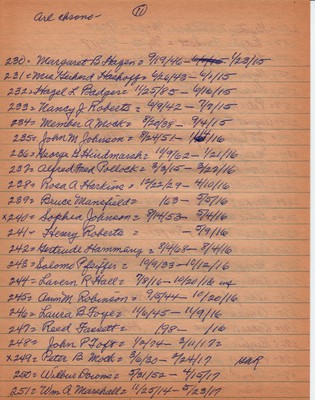 are chrono-
11
230= Margaret B Hagen = 9/19/46- 1/23/15
231= Mrs Richard Hashoff = 6/26/43 - 4/1/15
232= Hazel L Badger = 11/25/85 - 4/16/15
233= Nancy J Roberts = 4/9/42 - 7/7/15
234= Member A Mock = 3/20/38 - 9/4/15
235= John M Johnson = 8/24/51 - 1/ /16
236= George G Hindmarsh = 11/9/62 - 1/21/16
237= Alfred Fred Pollock = 3/3/15 - 3/27/16
238= Rosa A Harkins = 12/22/29 - 4/10/16
239= Bruce Mansfield = 163 - 5/5/16
x240= Sophia Johnson = 9/14/53 - 5/4/16
241= Henry Roberts = - 5/9/16
242= Gertrude Hammang = 9/4/68 - 8/4/16
243= Salome Pfeiffer = 10/9/33 - 10/12/16
244= Lavern R Hall = 7/8/16 - 10/20/16
245= Ann M. Robinson = 9/5/44 - 10/20/16
246= Laura B Foyer = 11/6/45 - 11/9/16
247= Reed Fassett = 198 - 116
248= John P Toft = 4/2/24 - 3/11/17=
x249= Peter B Mock = 3/6/30 - 3/24/17
250= Wilbur Downs = 3/31/52 - 4/15/17
251= Wm A Marshall = 11/25/14 - 5/23/17